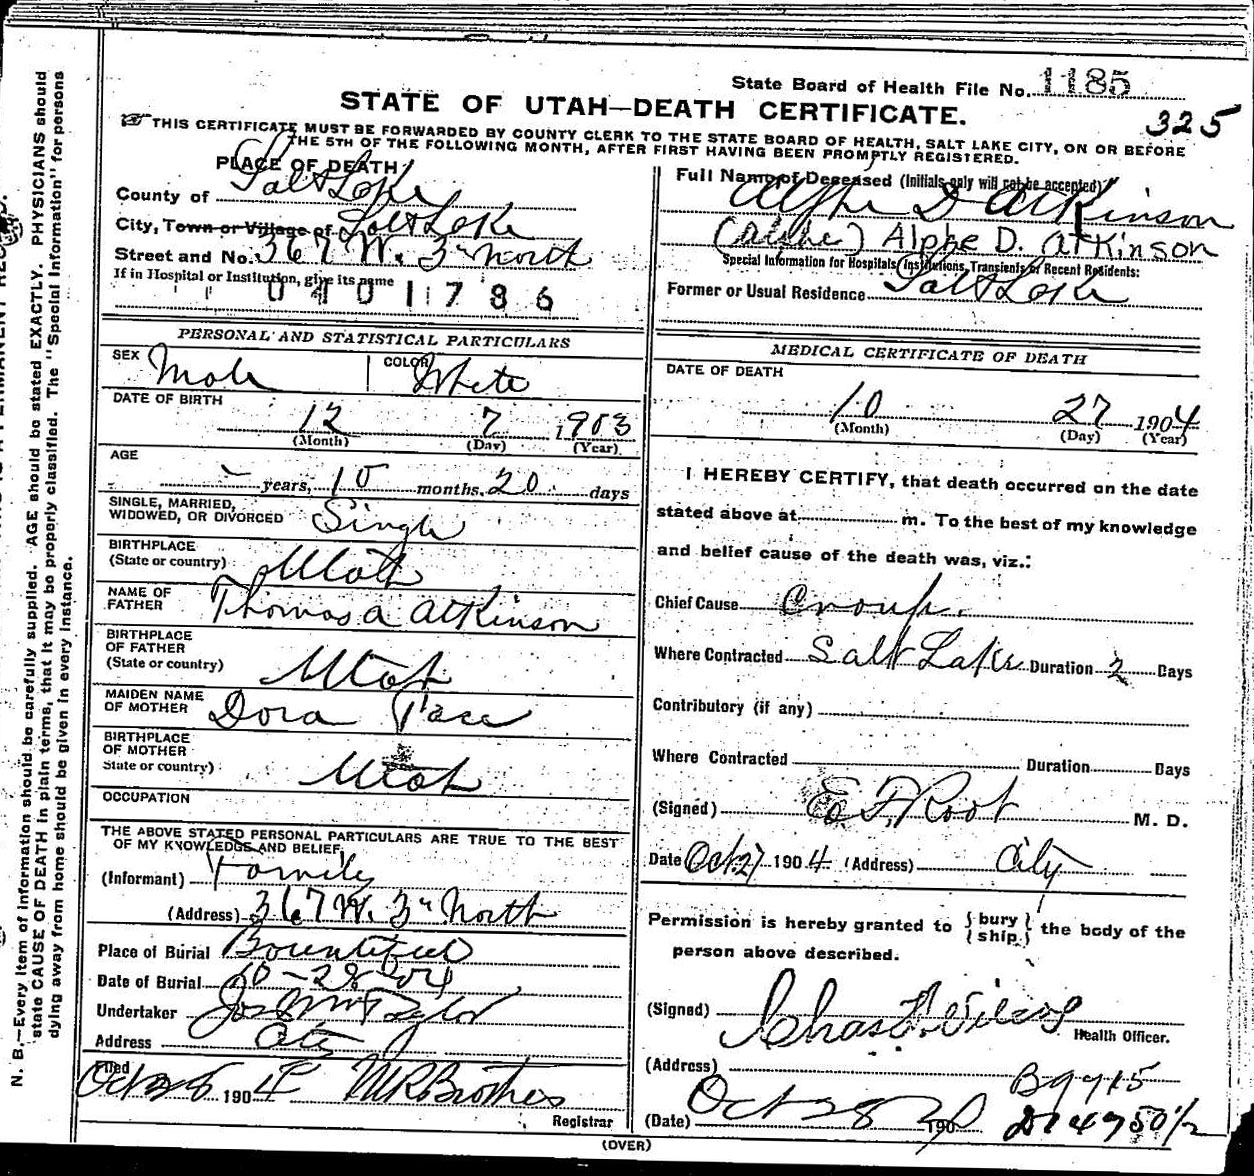 State Board of Health File No. 1185
STATE OF UTAH—DEATH CERTIFICATE.
325
THIS CERTIFICATE MUST BE FORWARDED BY COUNTY CLERK TO THE STATE BOARD OF HEALTH, SALT LAKE CITY, ON OR BEFORE
THE 5TH OF THE FOLLOWING MONTH, AFTER FIRST HAVING BEEN PROMPTLY REGISTERED.
PLACE OF DEATH
County of Salt Lake
City, Town or Village of Salt Lake
Street and No. 367 W. 3rd North
If in Hospital or Institution, give its name
0401786
Full Name of Deceased (Initials only will not be accepted)
Alphe D Atkinson
(Alphe) Alphe D. Atkinson
Special Information for Hospitals, Institutions, Transients or Recent Residents:
Former or Usual Residence Salt Lake
PERSONAL AND STATISTICAL PARTICULARS
SEX Male COLOR White
DATE OF BIRTH
12 7 1903
(Month) (Day) (Year)
AGE
- years, 10 months, 20 days
SINGLE, MARRIED,
WIDOWED, OR DIVORCED Single
BIRTHPLACE
(State or country) Utah
NAME OF
FATHER Thomas A Atkinson
BIRTHPLACE
OF FATHER
(State or country) Utah
MAIDEN NAME
OF MOTHER Dora Pace
BIRTHPLACE
OF MOTHER
State or country) Utah
OCCUPATION
THE ABOVE STATED PERSONAL PARTICULARS ARE TRUE TO THE BEST
OF MY KNOWLEDGE AND BELIEF
(Informant) Family
(Address) 367 W. 3rd North
Place of Burial Bountiful
Date of Burial 10-28-04
Undertaker Jos Wm Taylor
Address City
Filed
Oct 1904 M R Brothers
Registrar
MEDICAL CERTIFICATE OF DEATH
DATE OF DEATH
10 27 1904
(Month) (Day) (Year)
I HEREBY CERTIFY, that death occurred on the date
stated above at m. To the best of my knowledge
and belief cause of the death was, viz.:
Chief Cause Croup.
Where Contracted Salt Lake Duration 2 Days
Contributory (if any)
Where Contracted Duration Days
(Signed) E. F. Root M. D.
Date Oct 27 1904 (Address) City
Permission is hereby granted to { bury } { ship } the body of the
person above described.
(Signed) Chas F. Wilcox
Health Officer.
(Address)
B9915
(Date) Oct 28 190
D14950½
(OVER)
N. B.—Every item of information should be carefully supplied. AGE should be stated EXACTLY. PHYSICIANS should
state CAUSE OF DEATH in plain terms, that it may be properly classified. The "Special Information" for persons
dying away from home should be given in every instance.